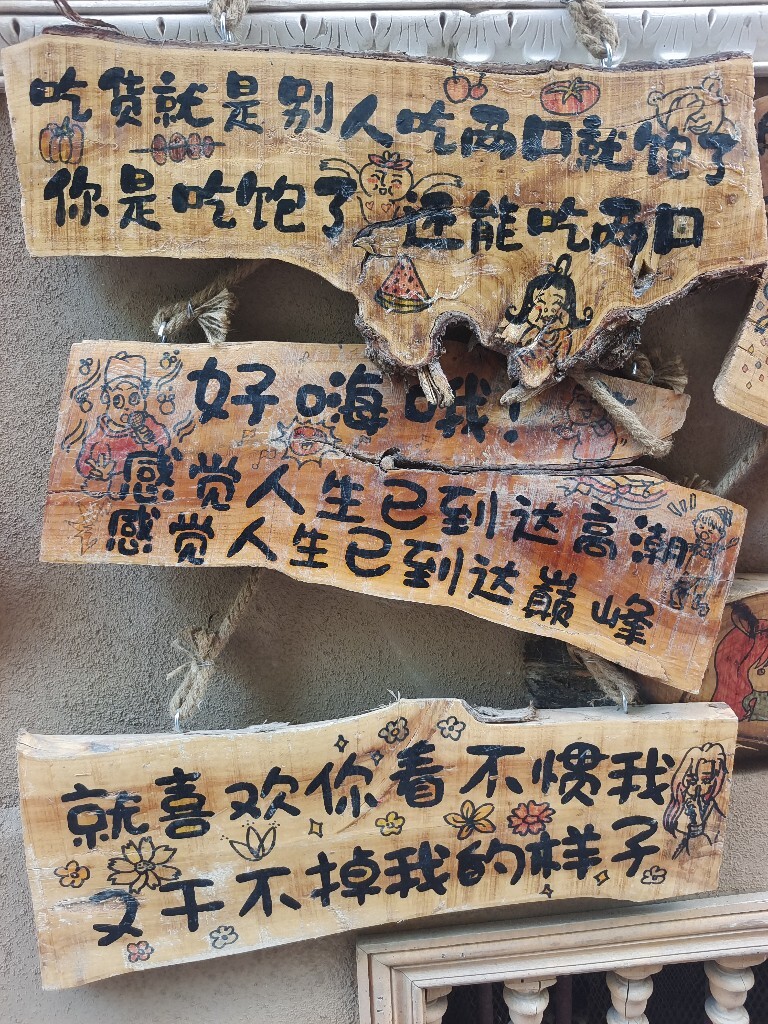 吃货就是别人吃两口就饱了
你是吃饱了还能吃两口
好嗨哦!
感觉人生已到达高潮
感觉人生已到达巅峰
就喜欢你看不惯我
又干不掉我的样子